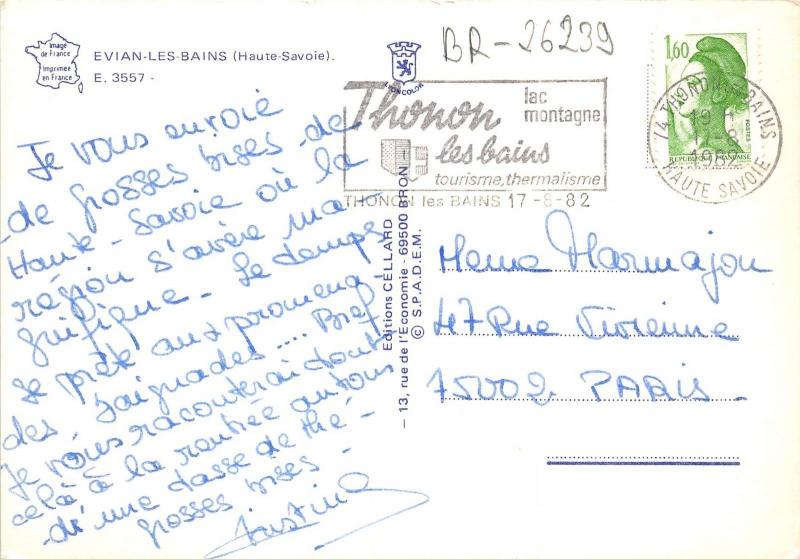 Image
de France
Imprimée
en France
EVIAN-LES-BAINS (Haute-Savoie).
E. 3557 -
LYONCOLOR
BR-26239
Thonon
lac
montagne
les bains
tourisme, thermalisme
THONON les BAINS 17-8-82
1,60
POSTES
REPUBLIQUE FRANÇAISE
74 THONON-LES-BAINS
19 H
17-8
1982
HAUTE SAVOIE
Je vous envoie
de grosses bises de
Haute-Savoie où la
région s'avère ma-
gnifique. Le temps
se prête aux promena-
des, baignades.... Bref
Je vous raconterai tout
celà à la rentrée autour
d'une tasse de thé-
grosses bises -
Editions CELLARD
- 13, rue de l'Economie - 69500 BRON -
© S.P.A.D.E.M.
Mme Marmajon
47 Rue Vivienne
75002 PARIS